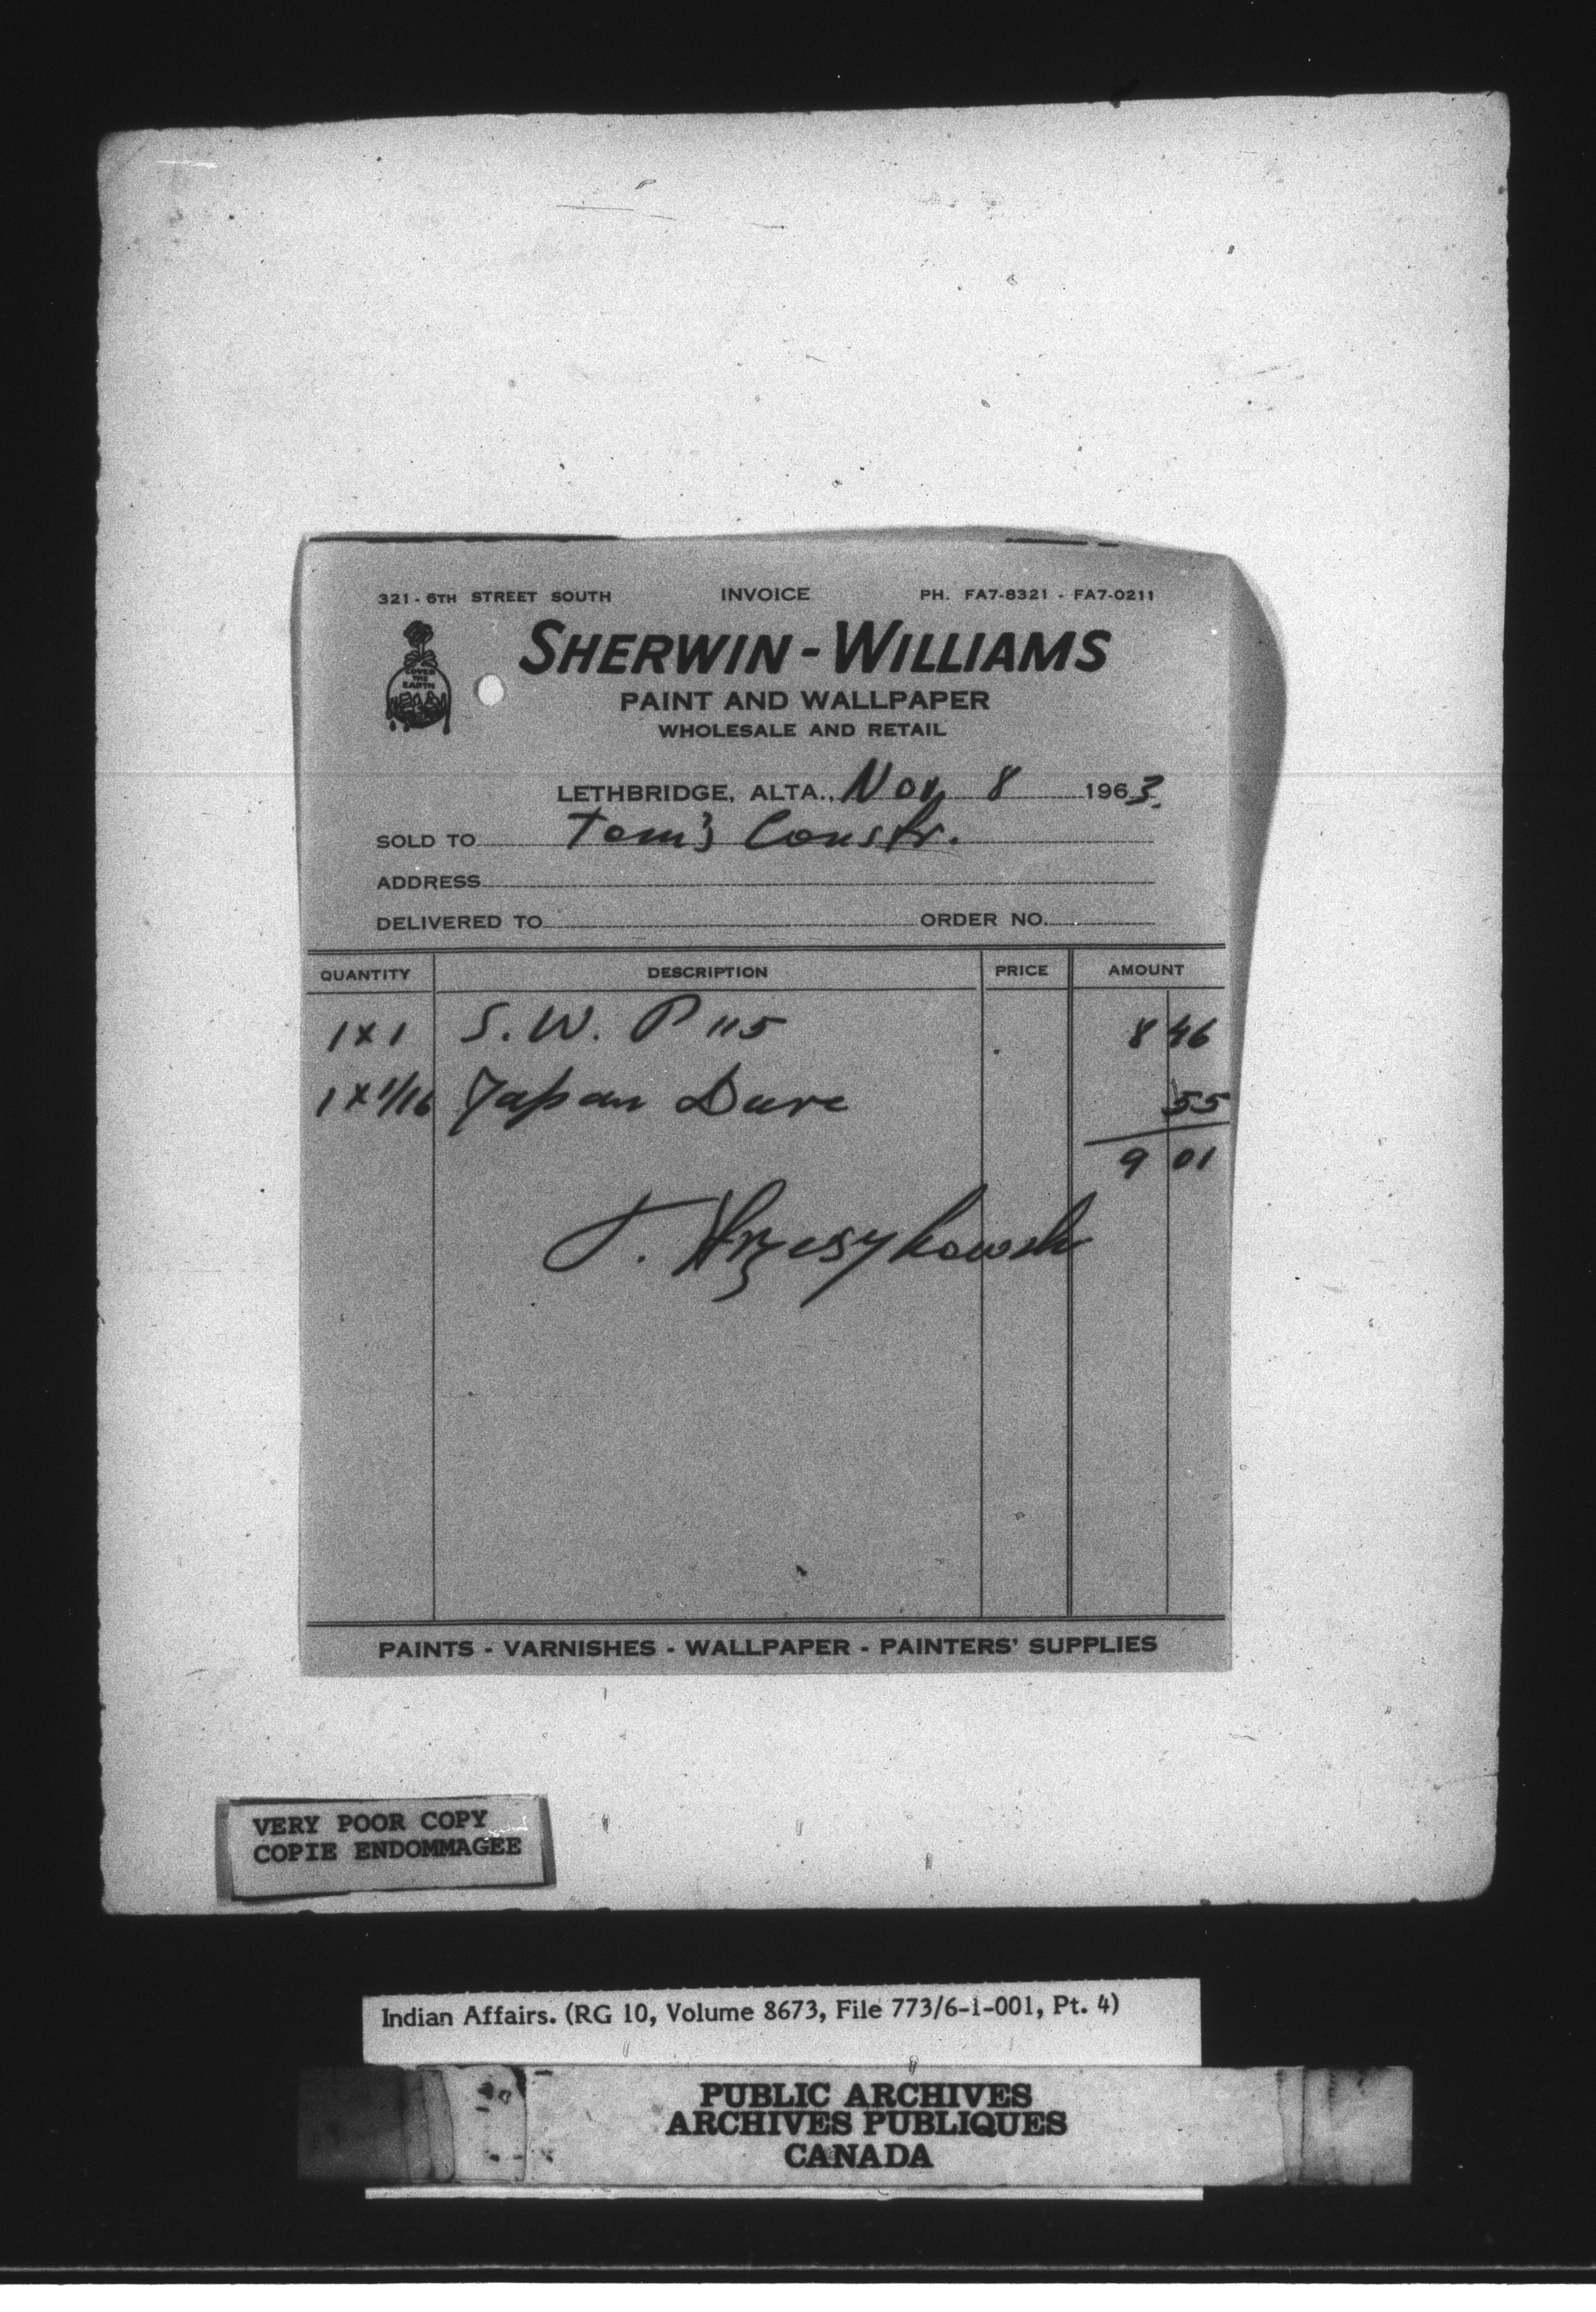 321 - 6TH STREET SOUTH INVOICE PH. FA7-8321 - FA7-0211
COVER
THE
EARTH
SHERWIN-WILLIAMS
PAINT AND WALLPAPER
WHOLESALE AND RETAIL
LETHBRIDGE, ALTA., Nov 8 1963.
SOLD TO Tom's Constr.
ADDRESS
DELIVERED TO ORDER NO.
QUANTITY DESCRIPTION PRICE AMOUNT
1x1 S. W. P 115 8 46
1x1/16 Japan 55
9 01
PAINTS - VARNISHES - WALLPAPER - PAINTERS' SUPPLIES
VERY POOR COPY
COPIE ENDOMMAGEE
Indian Affairs. (RG 10, Volume 8673, File 773/6-1-001, Pt. 4)
PUBLIC ARCHIVES
ARCHIVES PUBLIQUES
CANADA